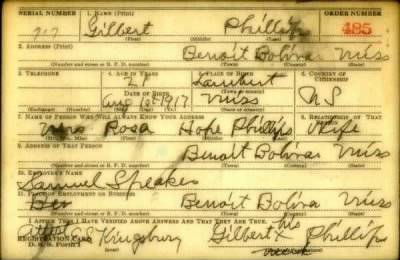 SERIAL NUMBER 1. NAME (Print) ORDER NUMBER
717 Gilbert Phillips 485
(First) (Middle) (Last)
2. ADDRESS (Print)
Benoit Bolivar Miss
(Number and street or R. F. D. number) (Town) (County) (State)
3. TELEPHONE 4. AGE IN YEARS 5. PLACE OF BIRTH 6. COUNTRY OF CITIZENSHIP
Lambert
DATE OF BIRTH (Town or county)
Aug 1917 Miss U S
(Exchange) (Number) (Mo.) (Day) (Yr.) (State or country)
7. NAME OF PERSON WHO WILL ALWAYS KNOW YOUR ADDRESS 8. RELATIONSHIP OF THAT PERSON
Mrs Rosa Hope Phillips Wife
(Mr., Mrs., Miss) (First) (Middle) (Last)
9. ADDRESS OF THAT PERSON
Benoit Bolivar Miss
(Number and street or R. F. D. number) (Town) (County) (State)
10. EMPLOYER'S NAME
Samuel Speakes
11. PLACE OF EMPLOYMENT OR BUSINESS
Benoit Bolivar Miss
(Number and street or R. F. D. number) (Town) (County) (State)
I AFFIRM THAT I HAVE VERIFIED ABOVE ANSWERS AND THAT THEY ARE TRUE.
his
Kingsbury Gilbert x Phillips
REGISTRATION CARD mark
D. S. S. Form 1